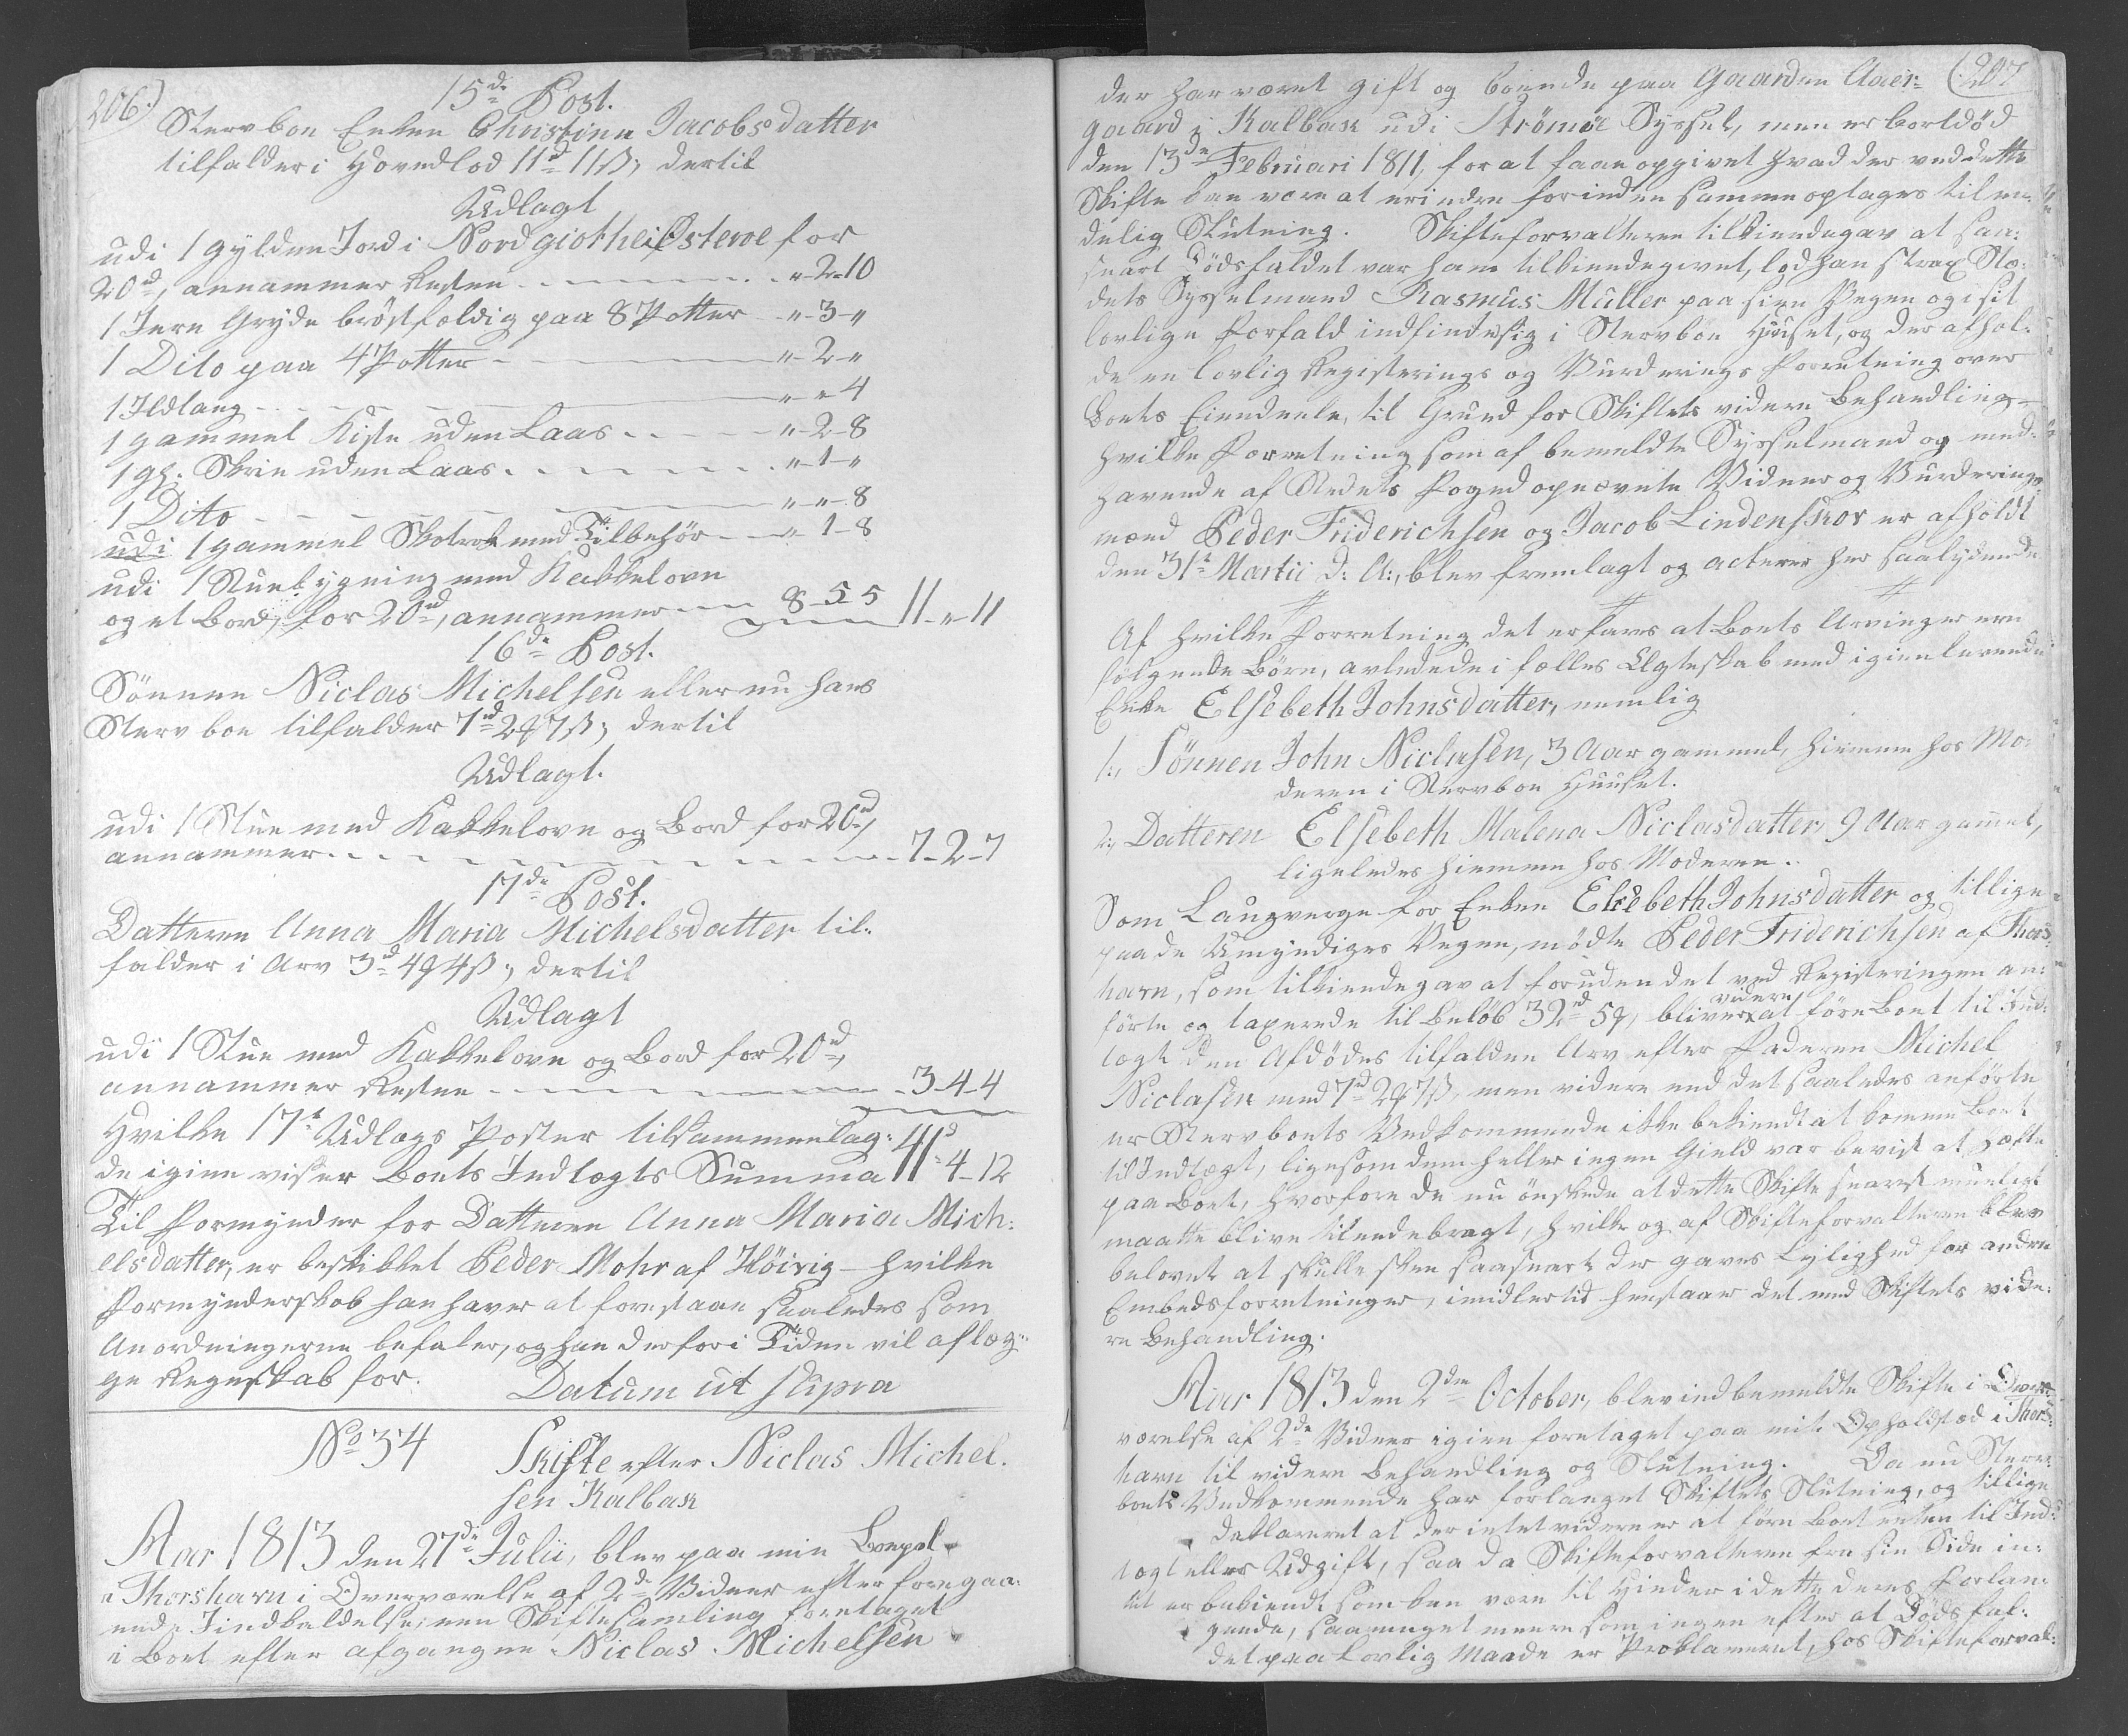 206.)
15de Post.
Stervboe Enken Christina Jacobsdatter
tilfalder i Hovedlod 11rd 11ß; dertil
Udlagt
udi 1 Gylden Jord i Nordgiothe i Østeroe for
20rd, annammer Resten - - - „-2-10
1 Jern Gryde brøstfældig paa 8 Potter - „-3-„
1 Dito paa 4 Potter - - - „-2-„
1 Ildtang - - - „-„-4
1 gammel Kiste uden Laas - - - „-2-8
1 gl. Skrin uden Laas - - - „-1-„
1 Dito - - - „-„-8
udi 1 gammel Skotrok med Tilbehør - - „-1-8
udi 1 Stuebygning med Kakkelovn
og et Bord, for 20rd, annammer - - 8-5-5 11-„-11
16de Post.
Sønnen Niclas Michelsen eller nu hans
Stervboe tilfalder 7rd 2₰ 7ß; dertil
Udlagt.
udi 1 Stue med Kakkelovn og Bord for 20rd,
annammer - - - 7-2-7
17de Post.
Datteren Anna Maria Michelsdatter til-
falder i Arv 3rd 4₰ 4ß; dertil
Udlagt
udi 1 Stue med Kakkelovn og Bord for 20rd,
annammer Resten - - - 3-4-4
Hvilke 17n Udlægs Poster tilsammenlag-
de igien viser Boets Indtægts Summa 411rd-4-12
Til Formynder for Datteren Anna Maria Mich-
elsdatter, er beskikket Peder Mohr af Höivig - hvilke
Formynderskab han haver at forestaae saaledes som
Anordningerne befaler, og han derfor i Tiden vil aflæg-
ge Regnskab for. Datum ut supra
No 34 Skifte efter Niclas Michel-
sen Kalbak
Aar 1813 den 27de Julii, blev paa min Boepel
i Thorshavn i Overværelse af 2de Vidner efter foregaa-
ende Indkaldelse, een Skiftesamling foretaget
i Boet efter afgangne Niclas Michelsen
(207
der har været gift og boende paa Gaarden Aaer-
gaard i Kalbak udi Strömöe Syssel, men er bortdød
den 13de Februari 1811, for at faae opgivet hvad der ved dette
Skifte kan være at erindre forinden samme optages til en-
delig Slutning. Skifteforvalteren tilkiendegav at saa-
snart Dödsfaldet var ham tilkiendegivet, lod han strax Stæ-
dets Sysselmand Rasmus Müller paa sine Vegne og i sit
lovlige Forfald indfinde sig i Stervboe Huuset, og der afhol-
de en lovlig Registerings og Vurderings Forretning over
Boets Eiendeele, til Grund for Skiftets videre Behandling -
hvilke Forretning som af bemeldte Sysselmand og med-
havende af Stedets Foged opnævnte Vidner og Vurderings-
mænd Peder Friderichsen og Jacob Lindenskov er afholdt
den 31te Martii d: A:, blev fremlagt og acteres her saalydende
# # #
Af hvilke Forretning det erfares at Boets Arvinger ere
følgende Børn, avlede i fælles Ægteskab med igienlevende
Enke Elsebeth Johnsdatter, nemlig
1., Sönnen John Niclasen, 3 Aar gammel, hiemme hos Mo-
deren i Stervboe Huuset.
2., Datteren Elsebeth Malena Niclasdatter, 9 Aar gammel,
ligeledes hiemme hos Moderen.
Som Laugverge for Enken Elsebeth Johnsdatter og tillige
paa de Umyndiges Vegne, mödte Peder Friderichsen af Thors-
havn, som tilkiendegav at foruden det ved Registeringen an-
førte og taxerede til Beløb 32rd 5₰, bliver videre at føre Boet til Ind-
tægt den Afdødes tilfaldne Arv efter Faderen Michel
Niclasen med 7rd 2₰ 7ß, men videre end det saaledes anførte
er Stervboets Vedkommende ikke bekiendt at komme Boet
til Indtægt, ligesom dem heller ingen Gield var bevist at hæfte
paa Boet, hvorfore de nu ønskede at dette Skifte snarest mueligt
maatte blive tilendebragt, hvilke og af Skifteforvalteren blev
belovet at skulle skee saasnart der gaves Lejlighed for andre
Embedsforretninger, imidlertid henstaaer det med Skiftets vide-
re Behandling.
Aar 1813 den 2den October, blev indbemeldte Skifte i Over-
værelse af 2de Vidner igien foretaget paa mit Opholdstæd i Thors-
havn til videre Behandling og Slutning. Da nu Sterv-
boets Vedkommende har forlanget Skiftets Slutning, og tillige
deklareret at der intet videre er at føre Boet enten til Ind-
tægt eller Udgift, saa da Skifteforvalteren fra sin Side in-
tet er bekiendt som kan være til Hinder i dette deres Forlan-
gende, saa meget meere som ingen efter at Dödsfal-
det paa lovlig Maade er Proklameret, hos Skifteforval-